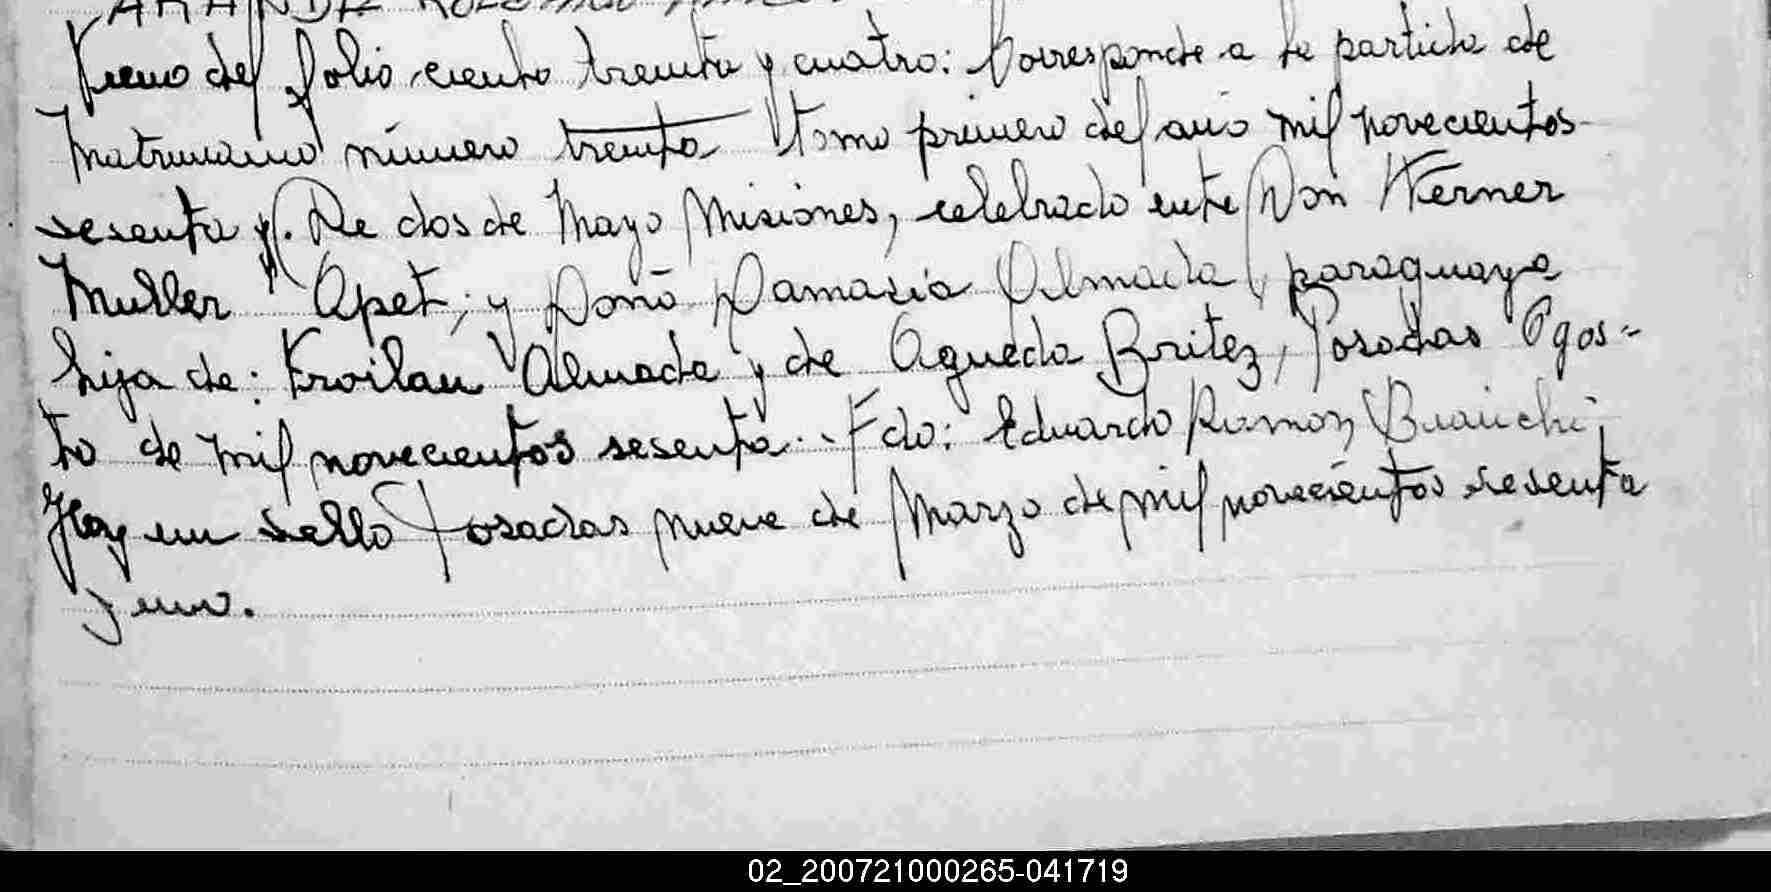 ARANDA
del folio ciento treinta y cuatro: Corresponde a la partida de
Matrimonio número treinta tomo primero del año mil novecientos
sesenta y. De dos de Mayo Misiones, celebrado entre Don Werner
Muller Apet, y Doña Damasia Almada, paraguaya
hija de: Froilan Almada y de Agueda Britez, Posadas Agos-
to de mil novecientos sesenta.- Fdo: Eduardo Ramon Bianchi,
Hay un sello Posadas nueve de Marzo de mil novecientos sesenta
y uno.
02_200721000265-041719